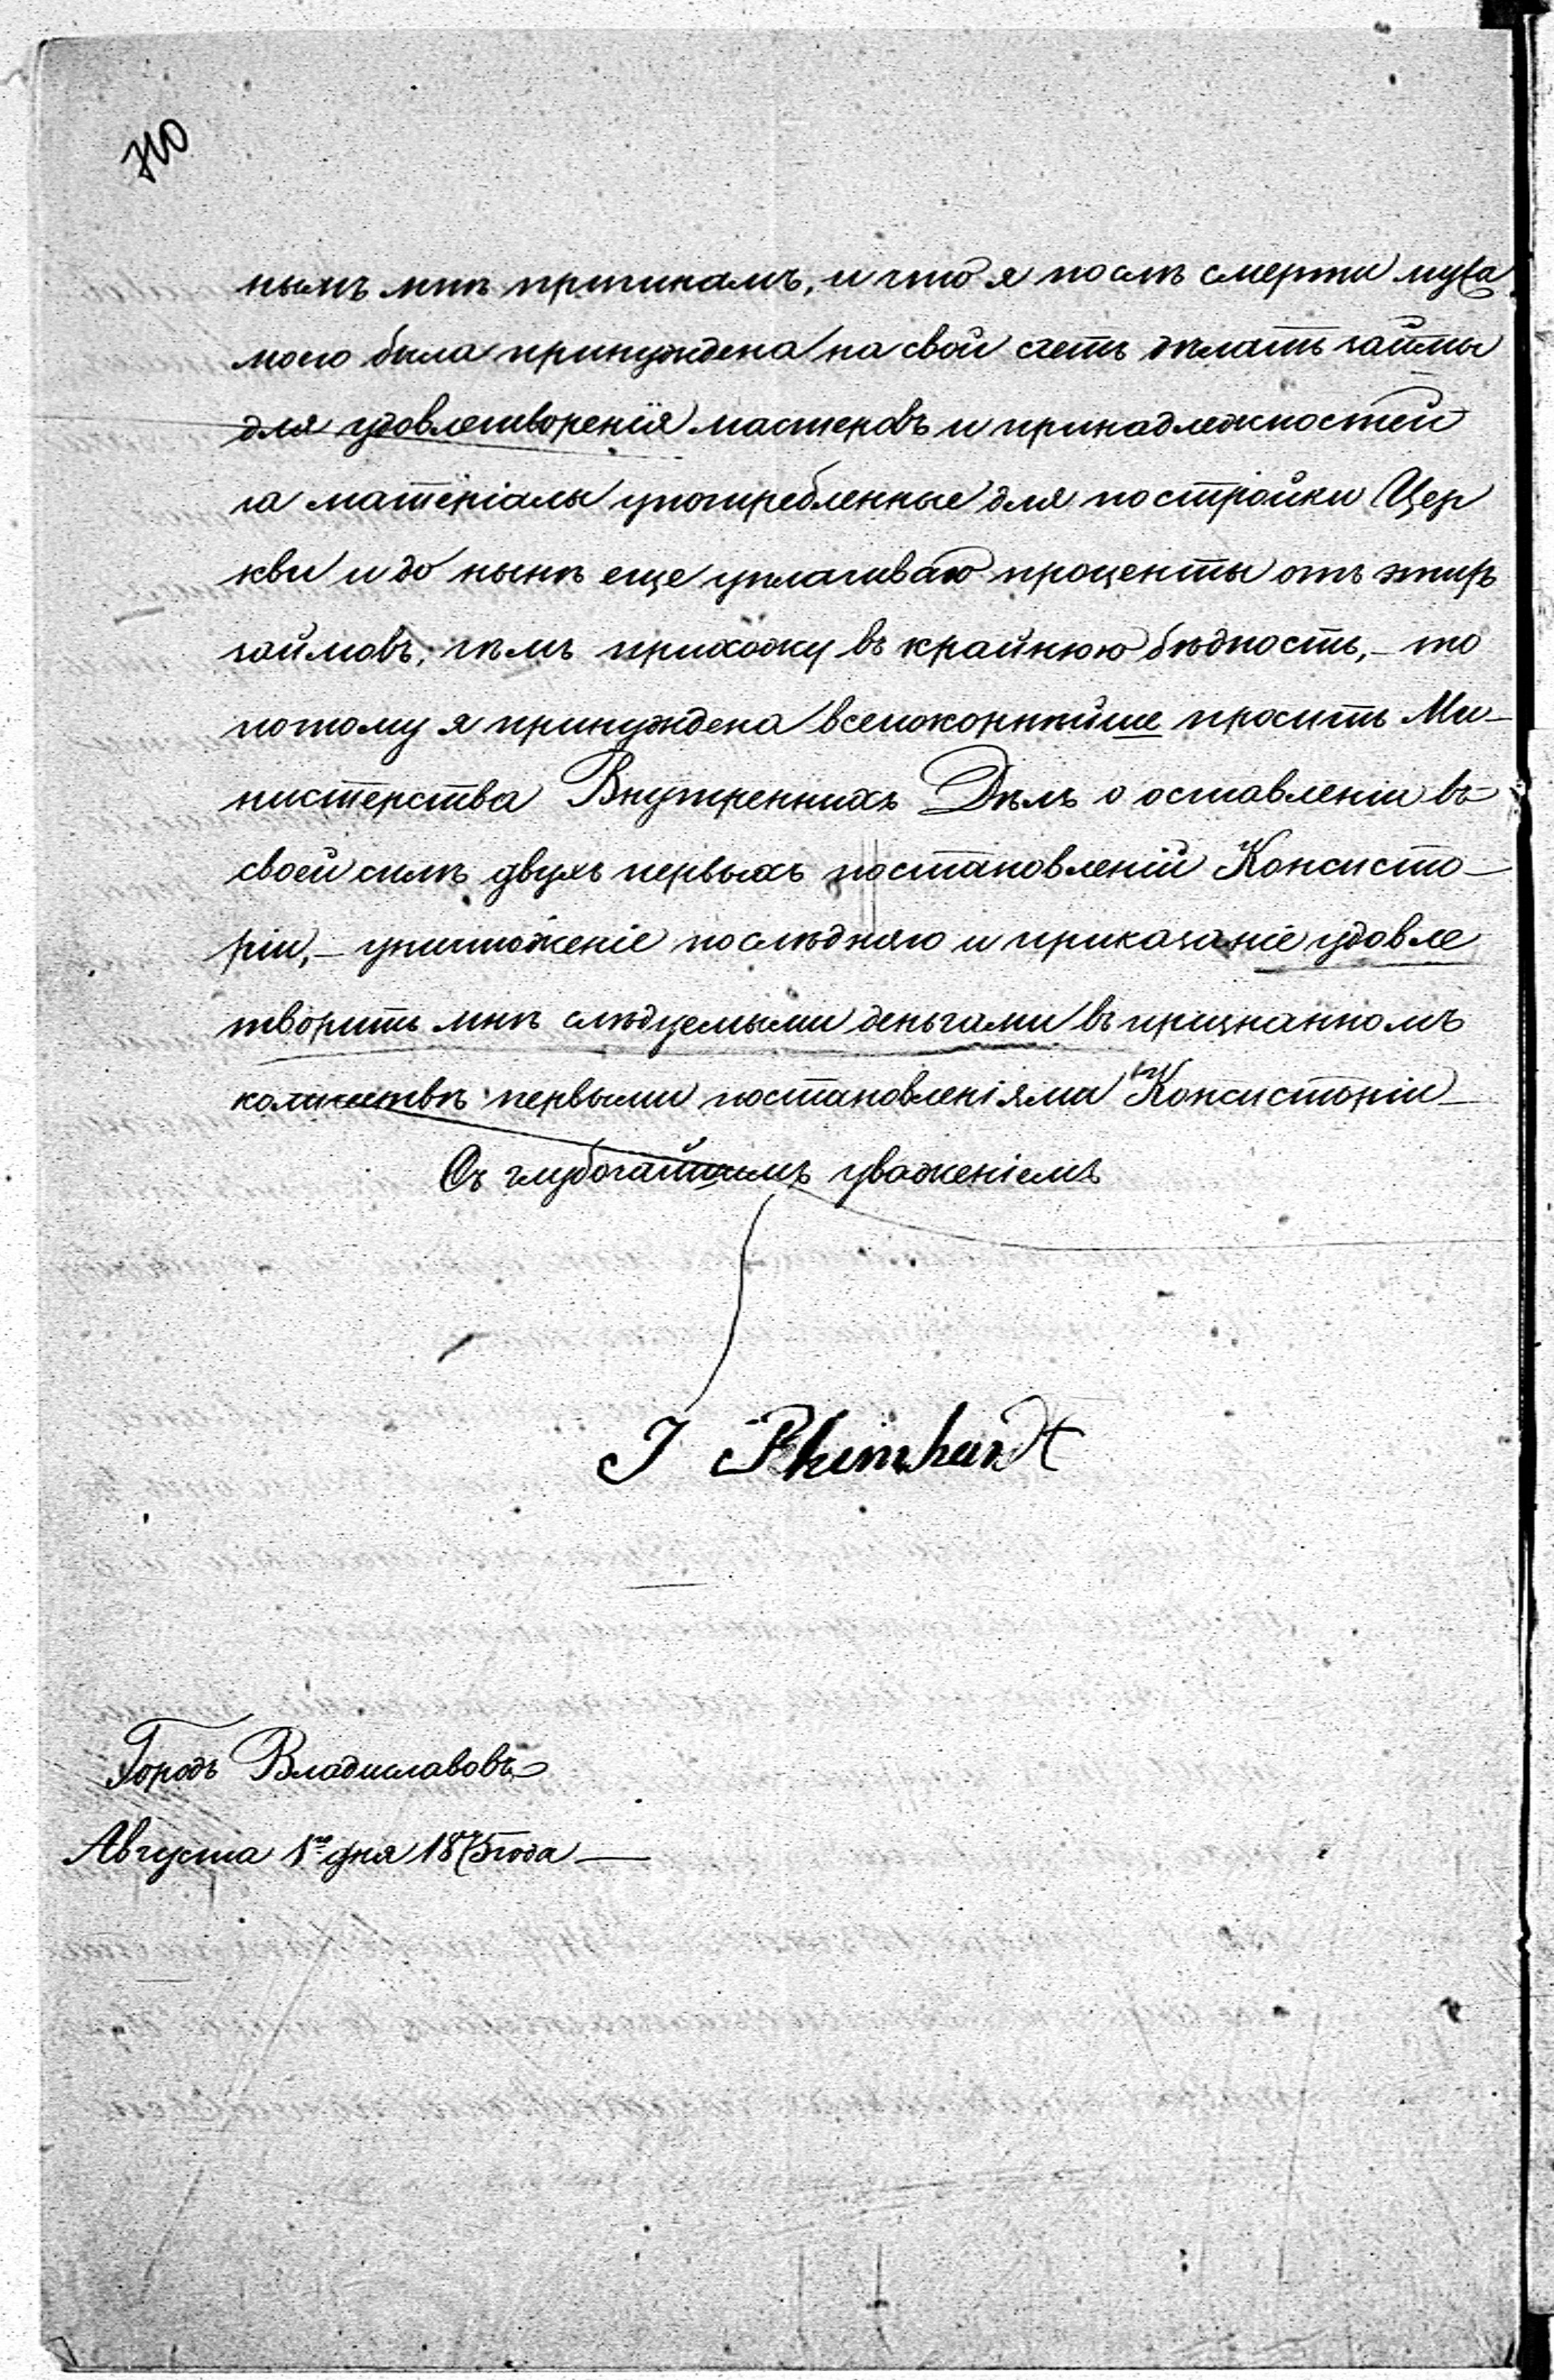 нымъ мнѣ причинамъ, и что я послѣ смерти мужа
моего была принуждена на свой счетъ дѣлать займы
для удовлетворенія мастеровъ и принадлежностей
за матеріалы употребленные для постройки Цер
кви и до нынѣ еще уплачиваю проценты отъ этихъ
займовъ, чѣмъ прихожу въ крайнюю бѣдность, – то
потому я принуждена всепокорнѣйше просить Ми–
нистерства Внутреннихъ Дѣлъ о оставленіи въ
своей силѣ двухъ первыхъ постановленій Консисто–
ріи, – уничтоженіе послѣдняго и приказаніе удовле
творить мнѣ слѣдуемыми деньгами въ признанномъ
количествѣ первыми постановленіями Консисторіи –
Съ глубочайшимъ уваженіемъ
J Rheinhardt
Городъ Владиславовъ
Августа 1го дня 1875 года –